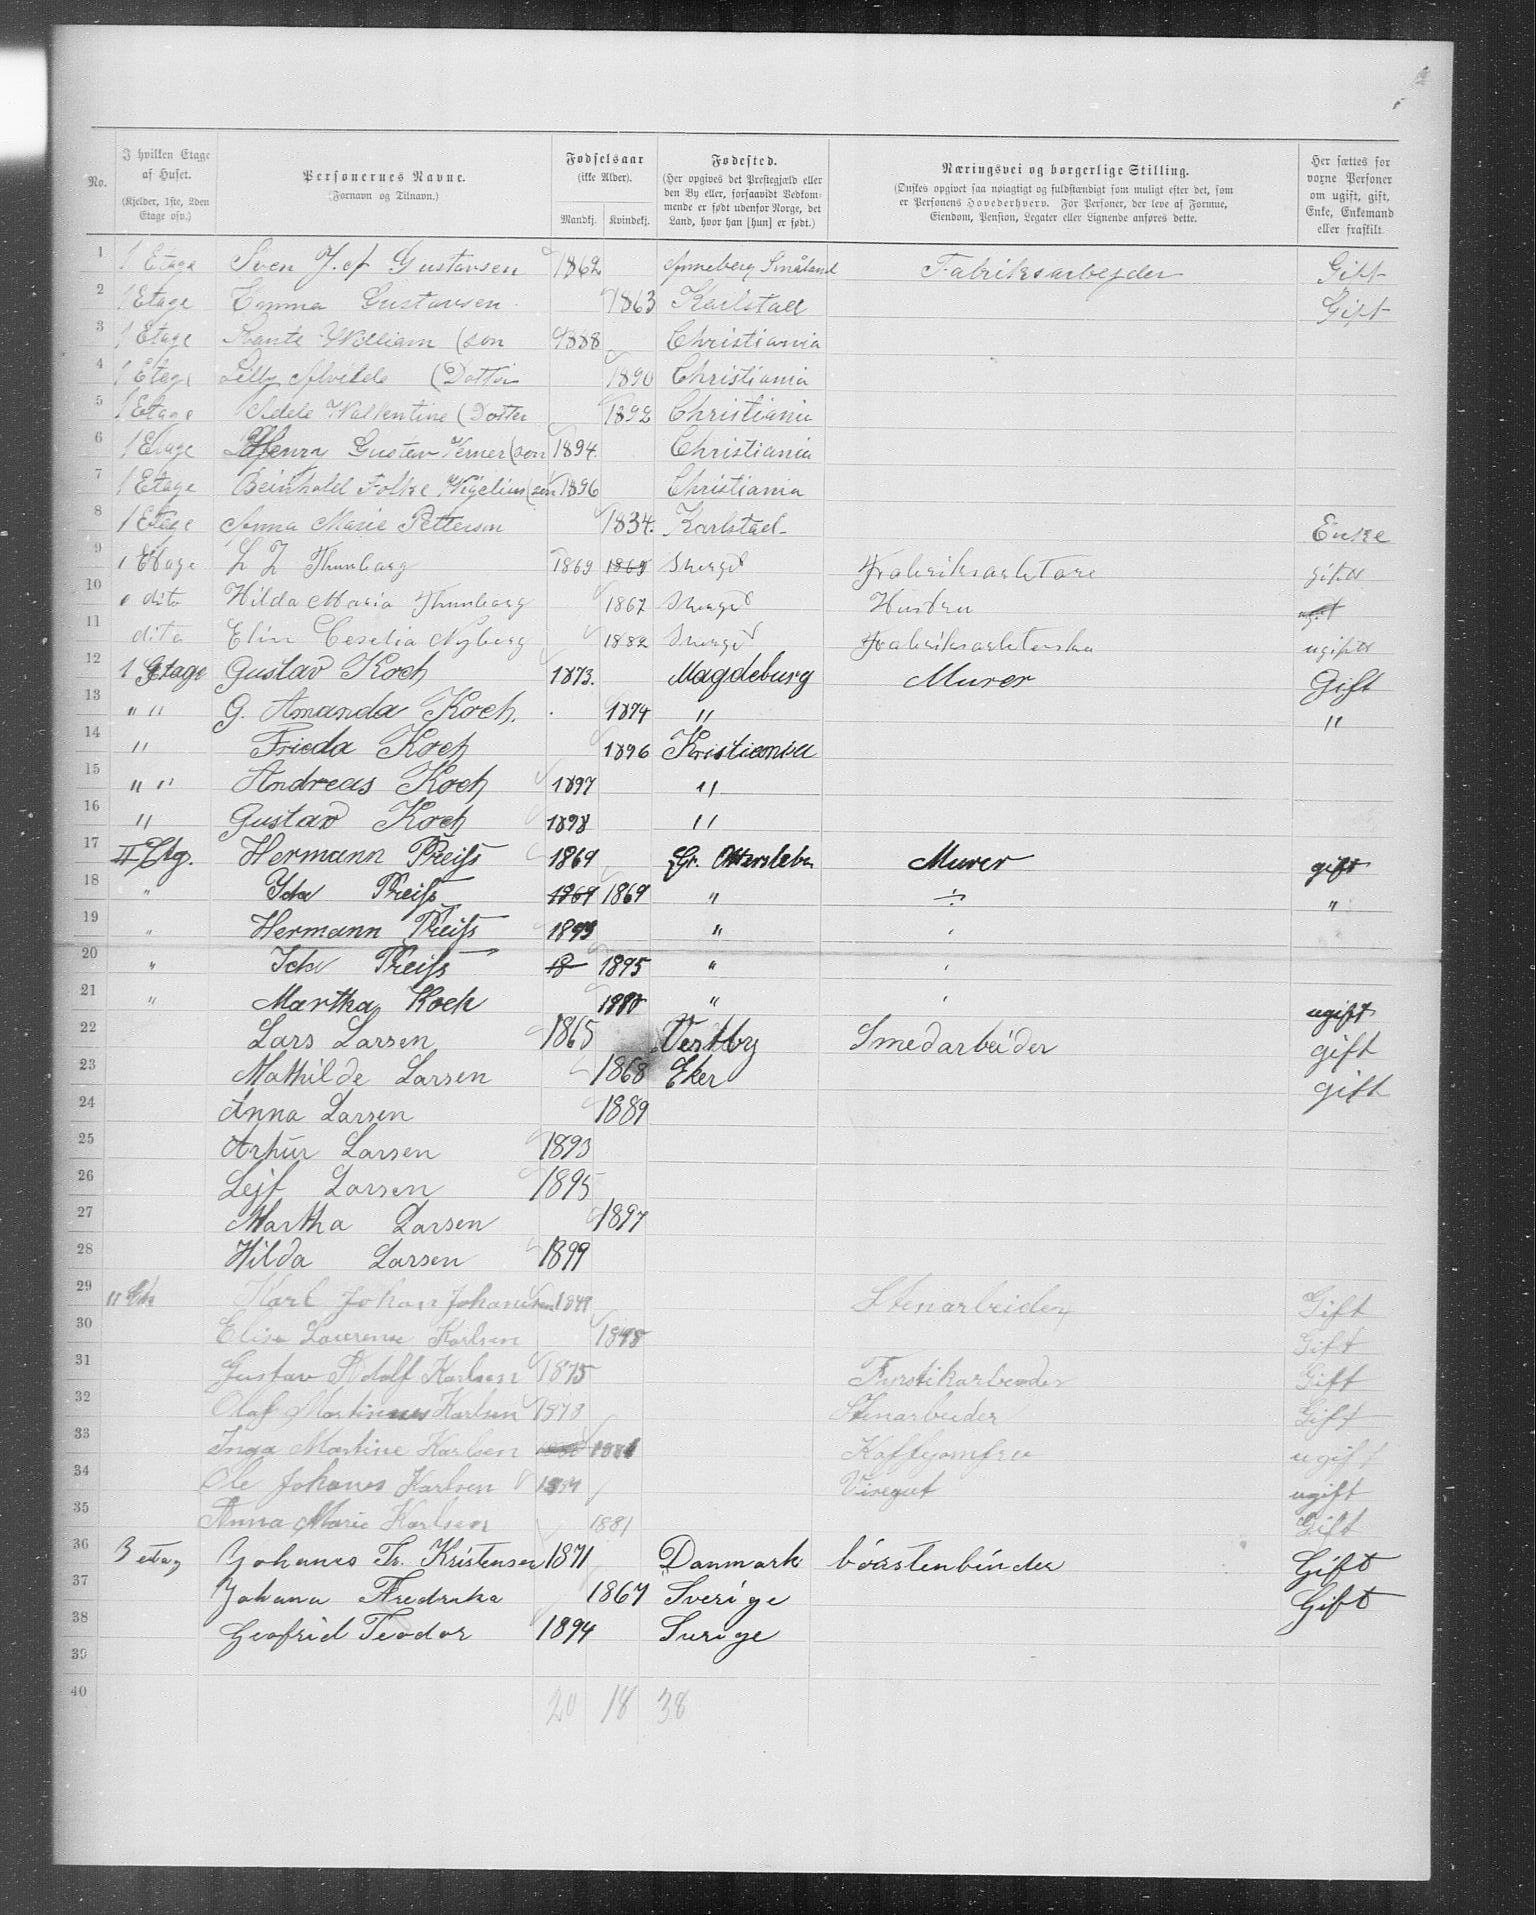 No. I hvilken Etage af Huset. (Kjelder, 1ste, 2den Etage osv.) Personernes Navne. (Fornavn og Tilnavn.) Fødselsaar (ikke Alder). Mandkj. Kvindekj. Fødested. (Her opgives det Prestegjæld eller den By eller, forsaavidt Vedkommende er født udenfor Norge, det Land, hvor han [hun] er født.) Næringsvei og borgerlige Stilling. (Ønskes opgivet saa nøiagtigt og fuldstændigt som muligt efter det, som er Personens Hovederhverv. For Personer, der leve af Formue, Eiendom, Pension, Legater eller Lignende anføres dette. Her sættes for voxne Personer om ugift, gift, Enke, Enkemand eller fraskilt.
1 1 Etage Sven J. Gustavsen 1862 Anneberg Småland Fabriksarbejder Gift
2 1 Etage Emma Gustavsen 1863 Karlstad Gift
3 1 Etage William (son 1888 Christiania
4 1 Etage Lilly Alvilde (Dotter 1890 Christiania
5 1 Etage Adele Wallentine (Dotter 1892 Christiania
6 1 Etage Henry Gustav Verner (son 1894 Christiania
7 1 Etage Reinhold Folke (son 1896 Christiania
8 1 Etage Anna Marie Petterson 1834. Karlstad Enke
9 1 Etage L Z Thunbarg 1869 1869 Sverge Frabriksarbetare gift
10 dito Hilda Maria Thunbarg 1867 Sverge Hustru
11 dito Elin Ceselia Nyberg 1882 Sverge Frabriksarbeterska ugift
12 1 Etage Gustav Koch 1873. Magdeburg Murer Gift
13 " " G. Amanda Koch. 1874 " "
14 " Frieda Koch 1896 Kristiania
15 " " Andreas Koch 1897 "
16 " Gustav Koch 1898 "
17 II Etg. Hermann Preiß 1869 Gr. Ottersleben Murer gift
18 " Ida Preiß 1869 1869 " ÷ "
19 " Hermann Preiß 1893 "
20 " Ida Preiß 18 1895 "
21 " Martha Koch 1880 " ugift
22 Lars Larsen 1865 Vestby Smedarbeider gift
23 Mathilde Larsen 1868 Eker gift
24 Anna Larsen 1889
25 Arthur Larsen 1893
26 Lejf Larsen 1895
27 Martha Larsen 1897
28 Hilda Larsen 1899
29 Karl Johan Johannesen 1849 Stenarbeider Gift
30 Elise Laurense Karlsen 1848 Gift
31 Gustav Adolf Karlsen 1875 Fyrstikarbeider Gift
32 Olaf Martinius Karlsen 1878 Stenarbeider Gift
33 Inga Martine Karlsen Kaffejomfru ugift
34 Ole Johanes Karlsen 1884 Visegut ugift
35 Anna Marie Karlsen 1881 Gift
36 3 etag Johanes Fr. Kristensen 1871 Danmark börstenbinder Gift
37 Johana Fredrika 1867 Sverige Gift
38 Geofrid Teodor 1894 Sverige
39
40 20 18 38